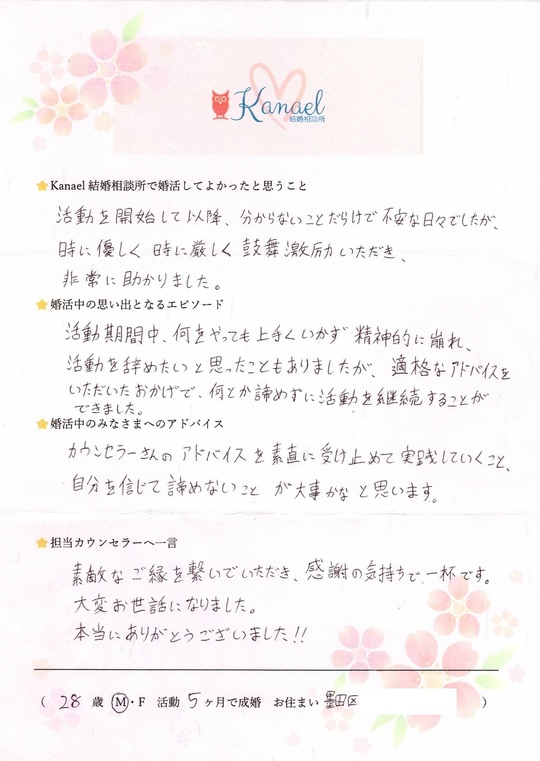 Kanael
結婚相談所
Kanael 結婚相談所で婚活してよかったと思うこと
活動を開始して以降、分からないことだらけで不安な日々でしたが、
時に優しく 時に厳しく 鼓舞激励いただき、
非常に助かりました。
婚活中の思い出となるエピソード
活動期間中、何をやっても上手くいかず 精神的に崩れ、
活動を辞めたいと思ったこともありましたが、適格なアドバイスを
いただいたおかげで、何とか諦めずに活動を継続することが
できました。
婚活中のみなさまへのアドバイス
カウンセラーさんの アドバイスを素直に受け止めて実践していくこと、
自分を信じて諦めないこと が大事かなと思います。
担当カウンセラーへ一言
素敵なご縁を繋いでいただき、感謝の気持ちで一杯です。
大変お世話になりました。
本当にありがとうございました!!
( 28 歳 M・F 活動 5 ヶ月で成婚 お住まい 墨田区 )